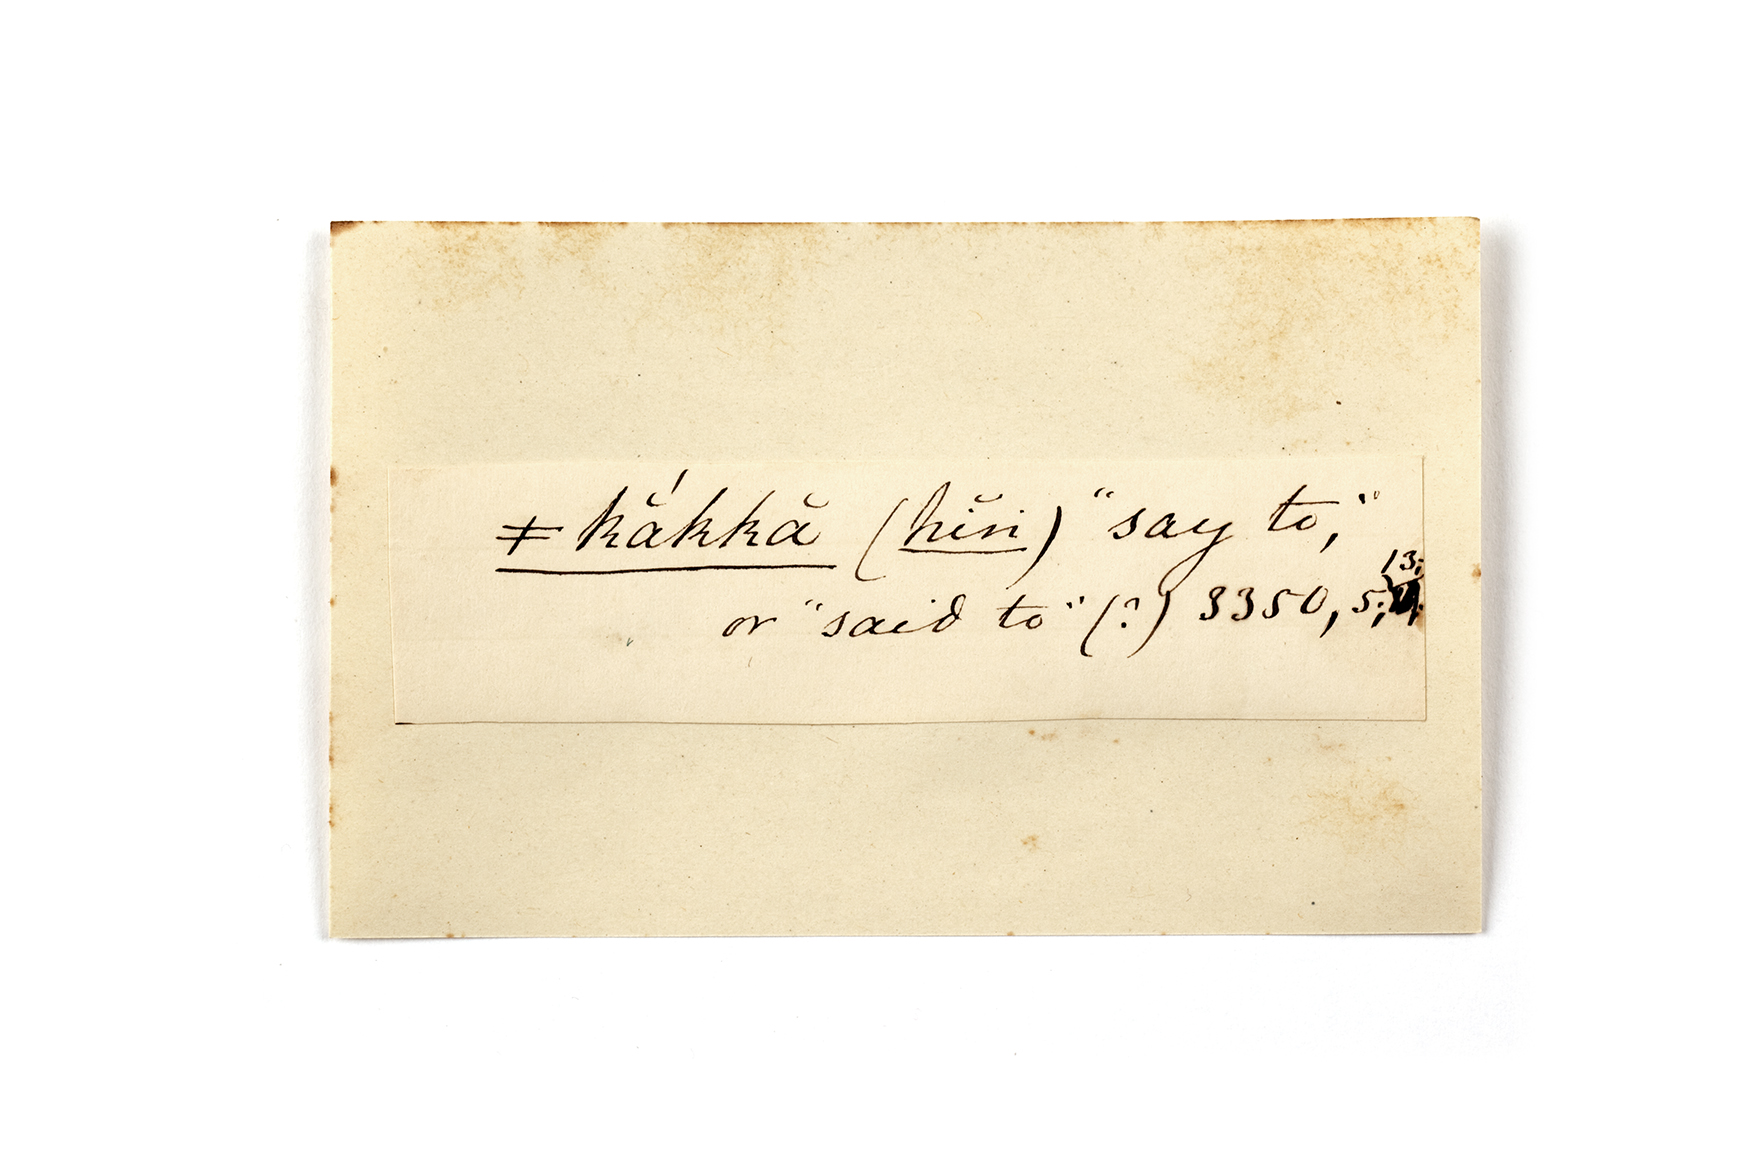 ǂkắkkă (hĭn) "say to,"
or "said to" (?) 3350, 5; 13;